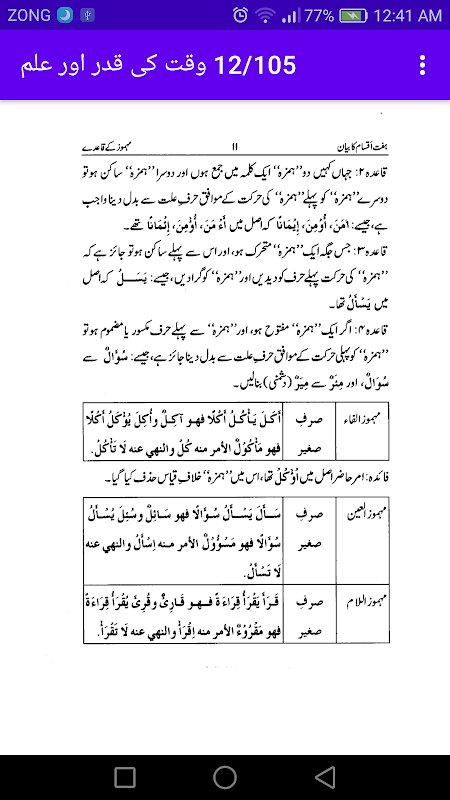 ZONG 77% 12:41 AM
12/105 وقت کی قدر اور علم
ہفت اقسام کا بیان ۱۱ مہموز کے قاعدے
قاعدہ ۲: جہاں کہیں دو ’’ہمزہ‘‘ ایک کلمہ میں جمع ہوں اور دوسرا ’’ہمزہ‘‘ ساکن ہو تو
دوسرے ’’ہمزہ‘‘ کو پہلے ’’ہمزہ‘‘ کی حرکت کے موافق حرفِ علت سے بدل دینا واجب
ہے، جیسے: اٰمَنَ، أُوْمِنَ، إِيْمَانًا کہ اصل میں أَءْ مَنَ، أُؤْمِنَ، إِئْمَانًا تھے۔
قاعدہ ۳: جس جگہ ایک ’’ہمزہ‘‘ متحرک ہو، اور اس سے پہلے ساکن ہو تو جائز ہے کہ
’’ہمزہ‘‘ کی حرکت پہلے حرف کو دیدیں اور ’’ہمزہ‘‘ کو گرا دیں، جیسے: يَسَلُ کہ اصل
میں يَسْأَلُ تھا۔
قاعدہ ۴: اگر ایک ’’ہمزہ‘‘ مفتوح ہو، اور ’’ہمزہ‘‘ سے پہلے حرف مکسور یا مضموم ہو تو
’’ہمزہ‘‘ کو پہلی حرکت کے موافق حرفِ علت سے بدل دینا جائز ہے، جیسے: سُؤَالٌ سے
سُوَالٌ، اور مِئَرٌ سے مِيَرٌ (دشمنی) بنالیں۔
مہموز الفاء صرفِ أَكَلَ يَأْكُلُ أَكْلًا فهو آكِلٌ وأُكِلَ يُؤْكَلُ أَكْلًا
صغیر فهو مَأْكُوْلٌ الأمر منه كُلْ والنهي عنه لَا تَأْكُلْ.
فائدہ: امر حاضر اصل میں اُؤْكُلْ تھا، اس میں ’’ہمزہ‘‘ خلافِ قیاس حذف کیا گیا۔
مہموز العین صرفِ سَأَلَ يَسْأَلُ سُؤَالًا فهو سَائِلٌ وسُئِلَ يُسْأَلُ
صغیر سُؤَالًا فهو مَسْؤُوْلٌ الأمر منه اِسْأَلْ والنهي عنه
لَا تَسْأَلْ.
مہموز اللام صرفِ قَرَأَ يَقْرَأُ قِرَاءَةً فهو قَارِئٌ وقُرِئَ يُقْرَأُ قِرَاءَةً
صغیر فهو مَقْرُوْءٌ الأمر منه اِقْرَأْ والنهي عنه لَا تَقْرَأْ.